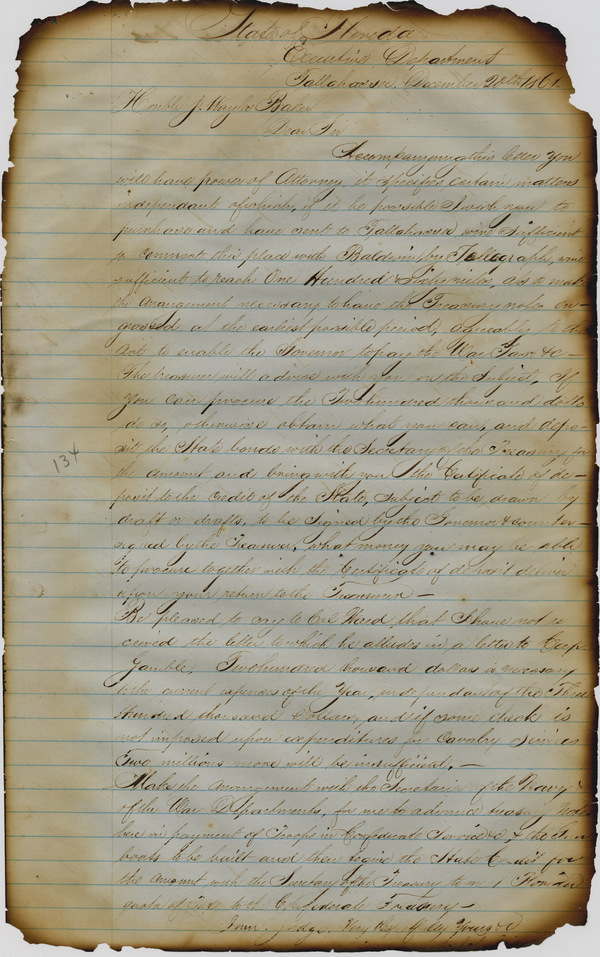 State of Florida
Executive Department
Tallahassee, December 20th 1861
Honble J. Wayles Baker
Dear Sir
Accompanying this letter You
will have power of Attorney, it specifies certain matters
independant of which, if it be possible I wish you to
purchase and have sent to Tallahassee wire sufficient
to connect this place with Baldwin by Tellegraph, wire
sufficient to reach One Hundred & Sixty miles, also make
the arangement necessary to have the Treasury notes en-
grossed at the earliest possible period, agreeably to the
Act to enable the Governor to pay the War Tax &c—
The treasurer will advise with you on the subject, If
You can procure the Two hundred thousand dollars
do so, otherwise obtain what you can, and depo-
sit the State bonds with the Secretary of the Treasury for
the amount and bring with you the Certificate of de-
posit to the credit of the State, subject to be drawn by
draft or drafts, to be signed by the Governor & counter-
signed by the Treasurer, what money you may be able
to procure together with the Certificate of deposit deliver
upon your return to the Treasurer—
134
Be pleased to say to Col Ward that I have not re
ceived the letter to which he alludes in a letter to
Gamble. Two hundred thousand dollars is necessary
to the current expenses of the Year, independant of the Three
Hundred thousand Dollars, and if some check is
not imposed upon expenditures for Cavalry Services
Two millions more will be insufficient,—
Make the arrangement with the Secretaries of the Navy &
of the War Departments, for me to advance treasury notes
here in payment of Troops in Confederate Service &c, & the
boats to be built and then require the State Credit for
the amount with the Secretary of the Treasury
quota of Tax to the Confederate Treasury—
Your